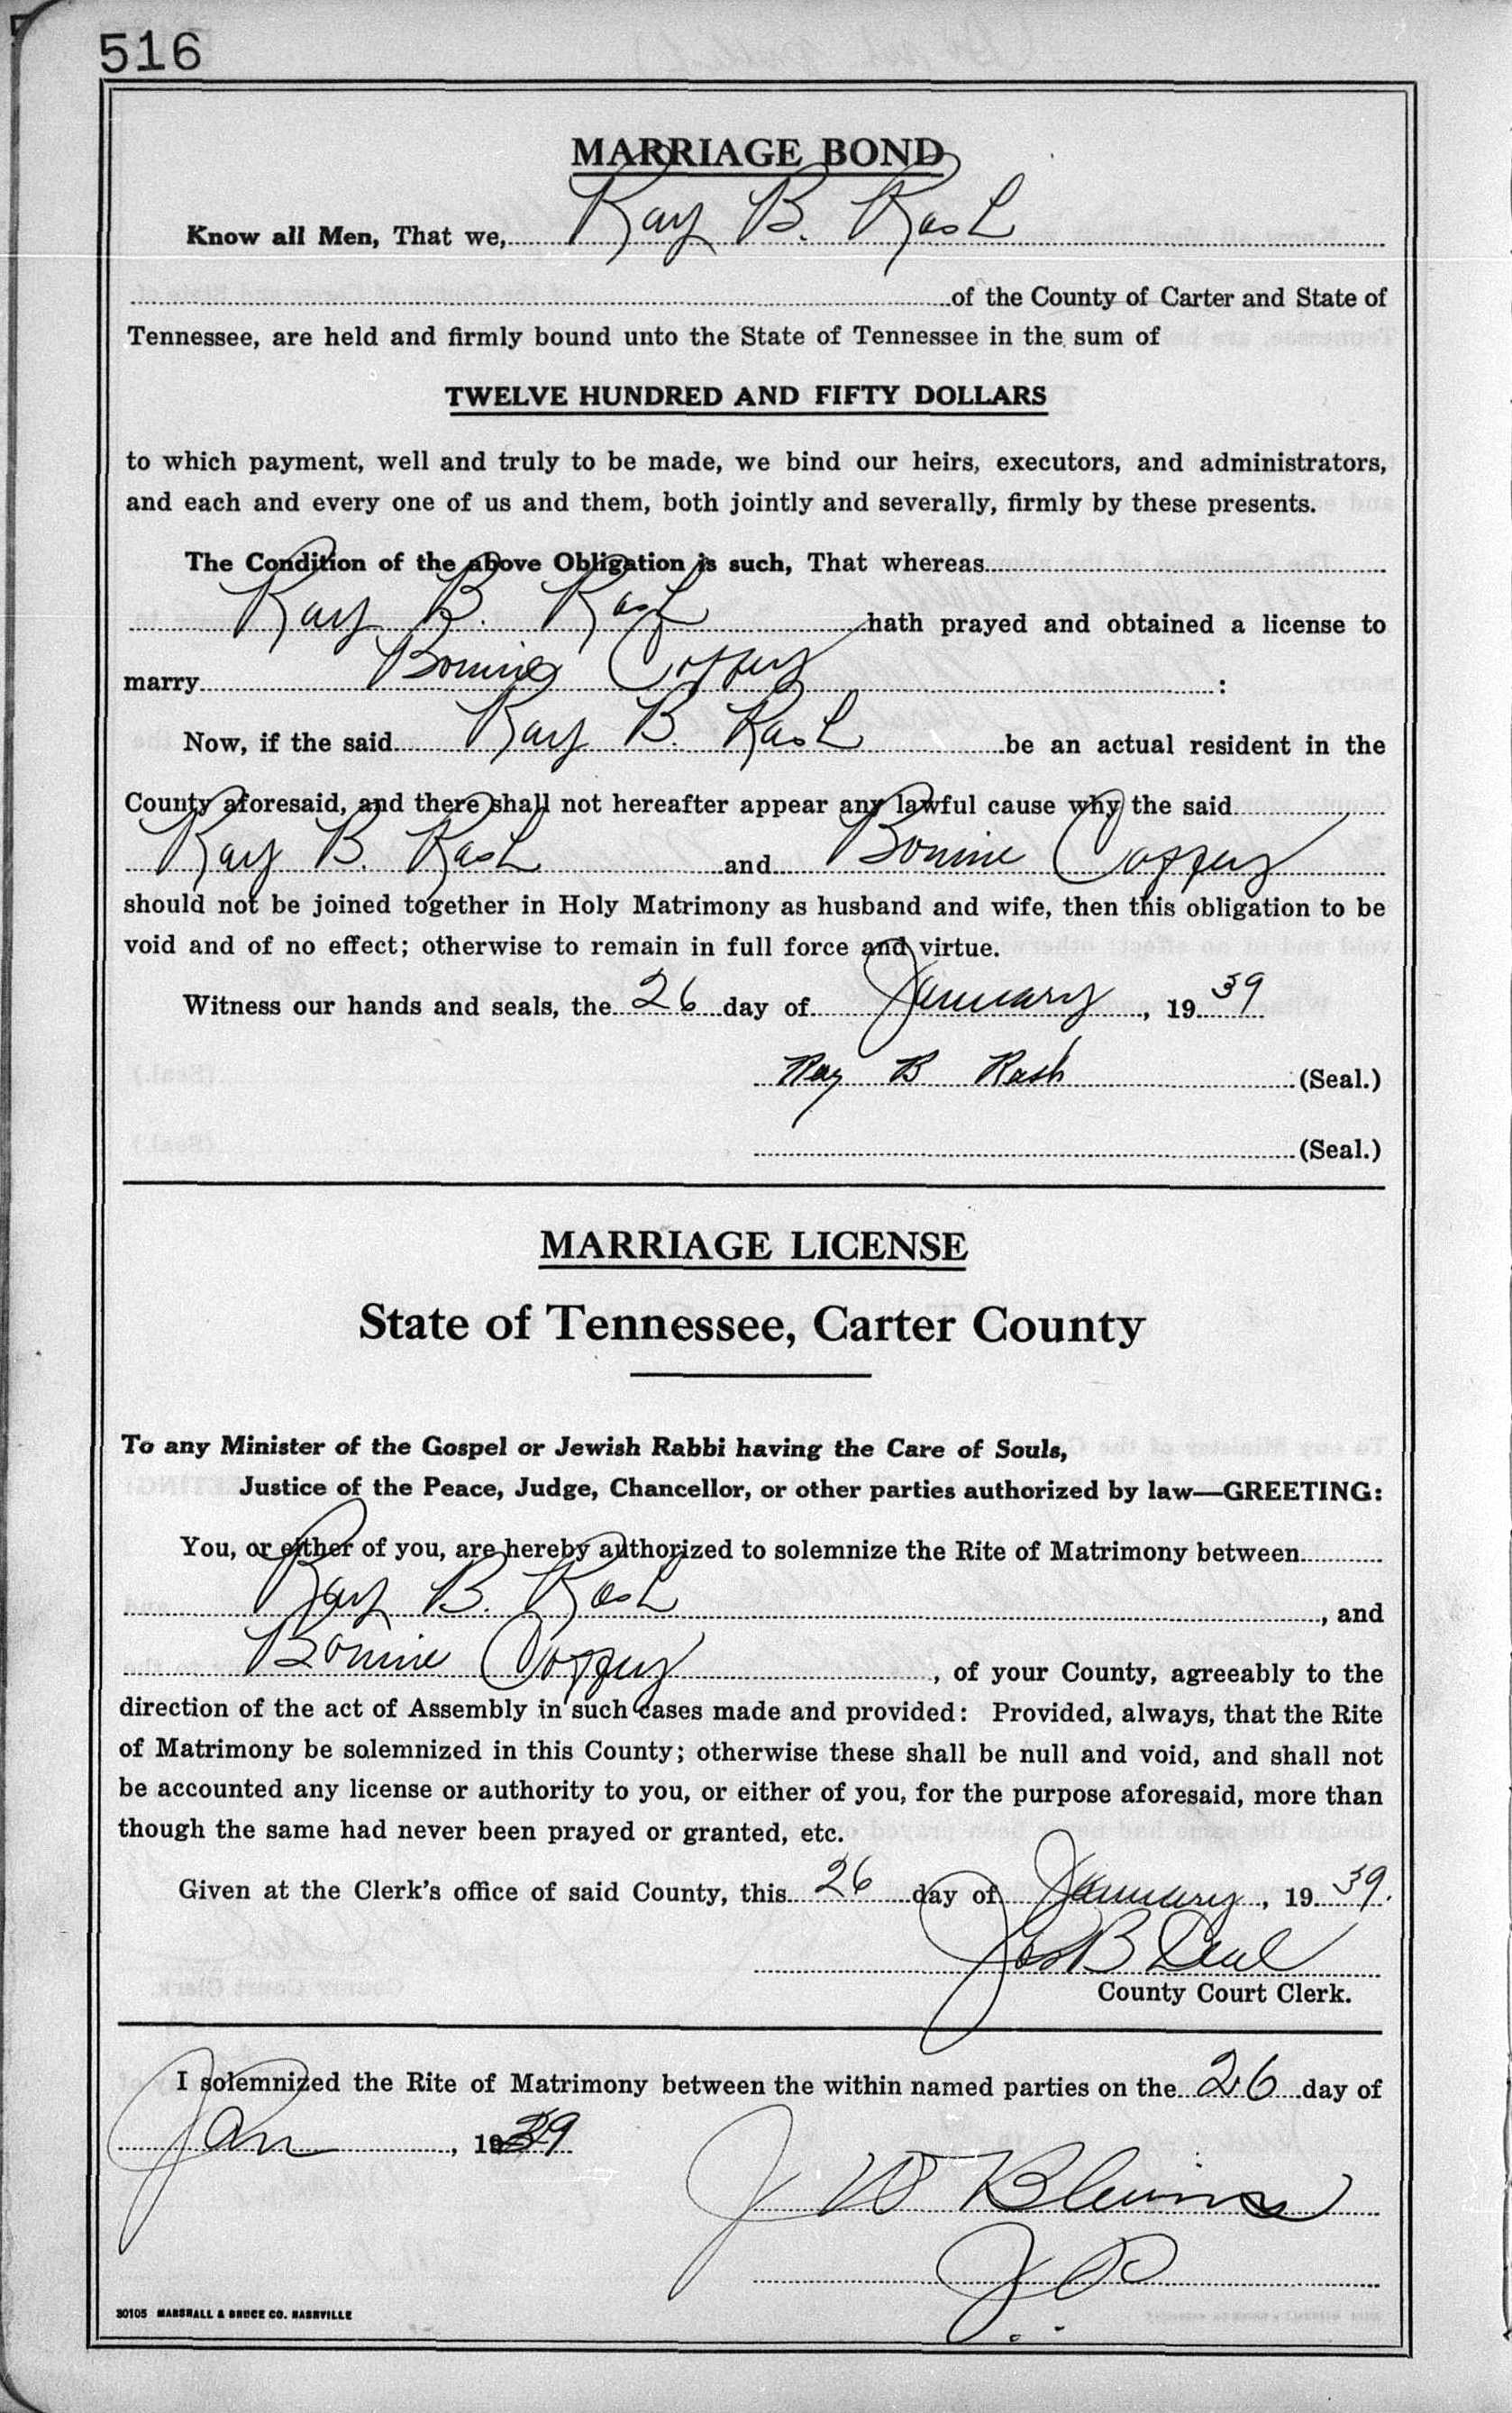 516
MARRIAGE BOND
Know all Men, That we, Ray B. Rash
of the County of Carter and State of
Tennessee, are held and firmly bound unto the State of Tennessee in the sum of
TWELVE HUNDRED AND FIFTY DOLLARS
to which payment, well and truly to be made, we bind our heirs, executors, and administrators,
and each and every one of us and them, both jointly and severally, firmly by these presents.
The Condition of the above Obligation is such, That whereas
Ray B. Rash hath prayed and obtained a license to
marry Bonnie :
Now, if the said Ray B. Rash be an actual resident in the
County aforesaid, and there shall not hereafter appear any lawful cause why the said
Ray B. Rash and Bonnie
should not be joined together in Holy Matrimony as husband and wife, then this obligation to be
void and of no effect; otherwise to remain in full force and virtue.
Witness our hands and seals, the 26 day of January, 1939
Ray B Rash (Seal.)
(Seal.)
MARRIAGE LICENSE
State of Tennessee, Carter County
To any Minister of the Gospel or Jewish Rabbi having the Care of Souls,
Justice of the Peace, Judge, Chancellor, or other parties authorized by law—GREETING:
You, or either of you, are hereby authorized to solemnize the Rite of Matrimony between
Ray B. Rash, and
Bonnie , of your County, agreeably to the
direction of the act of Assembly in such cases made and provided: Provided, always, that the Rite
of Matrimony be solemnized in this County; otherwise these shall be null and void, and shall not
be accounted any license or authority to you, or either of you, for the purpose aforesaid, more than
though the same had never been prayed or granted, etc.
Given at the Clerk's office of said County, this 26 day of January, 1939.
B
County Court Clerk.
I solemnized the Rite of Matrimony between the within named parties on the 26 day of
Jan, 1939
J W Blevins
J. P.
30105 MARSHALL & BRUCE CO. NASHVILLE